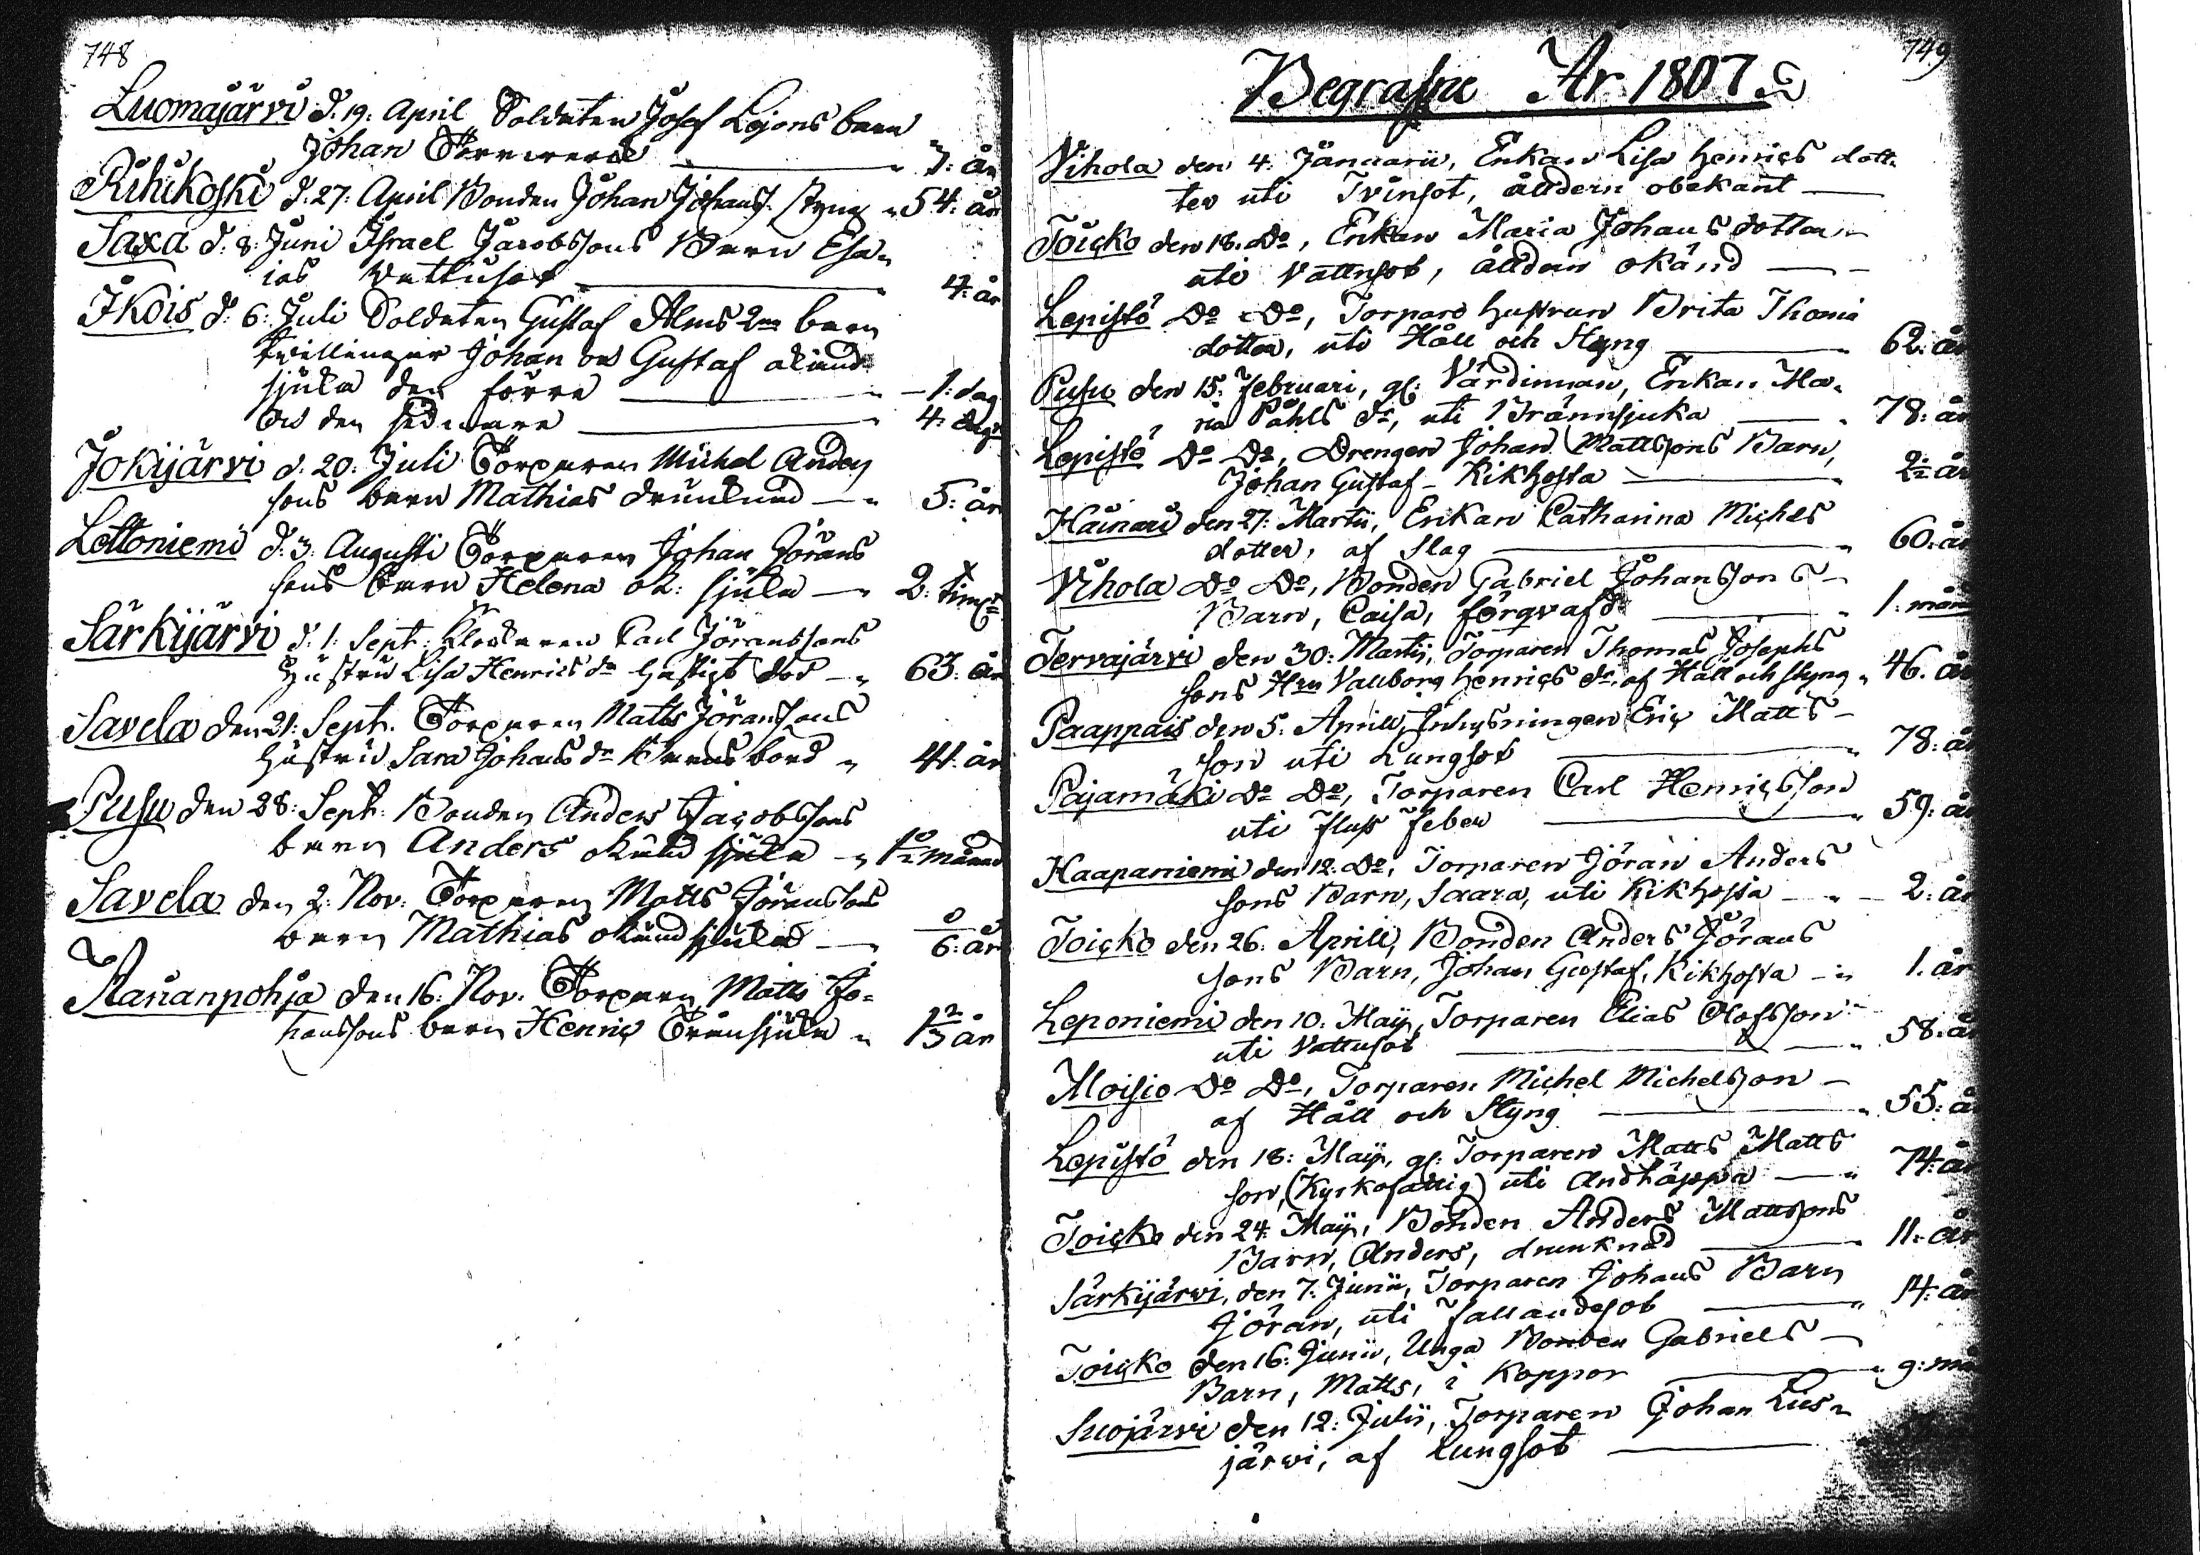 748
Luomajärvi d. 19. April Soldaten Josef Lejons barn
Johan 7: år
Rihikoski d. 27. April Bonden Johan Johans. styng 54. år
Saxa d. 8: Juni Israel Jacobssons Barn Esa-
ias Vattusot 4: år
Ikois d. 6: Juli Soldaten Gustaf Alms 2ne barn
tvillingar Johan och Gustaf okänd
sjuka den förre 1: dag
och den sednare 4: dagr
Jokijärvi d. 20. Juli Torparen Michel Anders
sons barn Mathias drunknad 5: år
Lottoniemi d. 3. Augusti Torparen Johan Jörans
sons barn Helena ok: sjuka 2: tim
Särkijärvi d. 1. Sept. Carl Jöranssons
Hustru Lisa Henrics dr hastigt död 63. år
Savela den 21. Sept. Torparen Matts Jöranssons
Hustru Sara Johans dr Barnsbörd 41. år
Pusu den 28: Sept. Bonden Anders Jacobssons
barn Anders okänd sjuka 1/2 månad
Savela den 2: Nov. Torparen Matts Jöranssons
barn Mathias okänd sjukd 6: år
Kananpohja den 16. Nov. Torparen Matts Jo-
hanssons barn Henric Bränsjuka 1 2/3 år
749
Begrafne År 1807.
Vihola den 4. Januarii, Enkan Lisa Henrics dott-
ter uti Tvinsot, ålldern obekant
Toicko den 18. Do, Enkan Maria Johans dotter
uti Vattusot, ålldern okänd
Lepistö Do Do, Torpare hustrun Brita Thomæ
dotter, uti Håll och Styng 62: år
Pusu den 15. Februari, gl: Värdinnan, Enkan Ma-
ria Påhls dr, uti Brännsjuka 78: år
Lepistö Do Do, Drengen Johan Mattssons Barn,
Johan Gustaf - Kikhosta 2 år
Hainari den 27. Martii, Enkan Catharina Michels
dotter, af Slag 60. år
Vihola Do Do, Bonden Gabriel Johanssons
Barn, Caisa, förqvafd 1: mån
Tervajärvi den 30: Martii, Torparen Thomas Josephs
sons Hru Vallborg Henrics dr, af Håll och styng 46. år
Paappais den 5. Aprill, Inhysningen Eric Matts-
son uti Lungsot 78: år
Pajamäki Do Do, Torparen Carl Henricsson
uti Fluss Feber 59: år
Haapaniemi den 12. Do, Torparen Jöran Anders
sons Barn, Saara, uti Kikhosta 2: år
Toicko den 26. Aprill, Bonden Anders Jörans
sons Barn, Johan Gustaf, Kikhosta 1. år
Leponiemi den 10. Maji, Torparen Elias Olofsson
uti Vattusot 58: år
Aloisio Do Do, Torparen Michel Michelsson
af Håll och Styng 55: år
Lepistö den 18: Maji, gl: Torparen Matts Matts
son, (Kyrkofattig) uti Andtäppa 74: år
Toicko den 24. Maji, Bonden Anders Mattssons
Barn, Anders, drunknad 11. år
Särkijärvi, den 7. Junii, Torparen Johans Barn
Jöran, uti Fallandesot 14: år
Toicko den 16. Junii, Unga Bonden Gabriels
Barn, Matts, i Koppor 9: må
Suojärvi den 12: Julii, Torparen Johan Lies-
järvi, af Lungsot